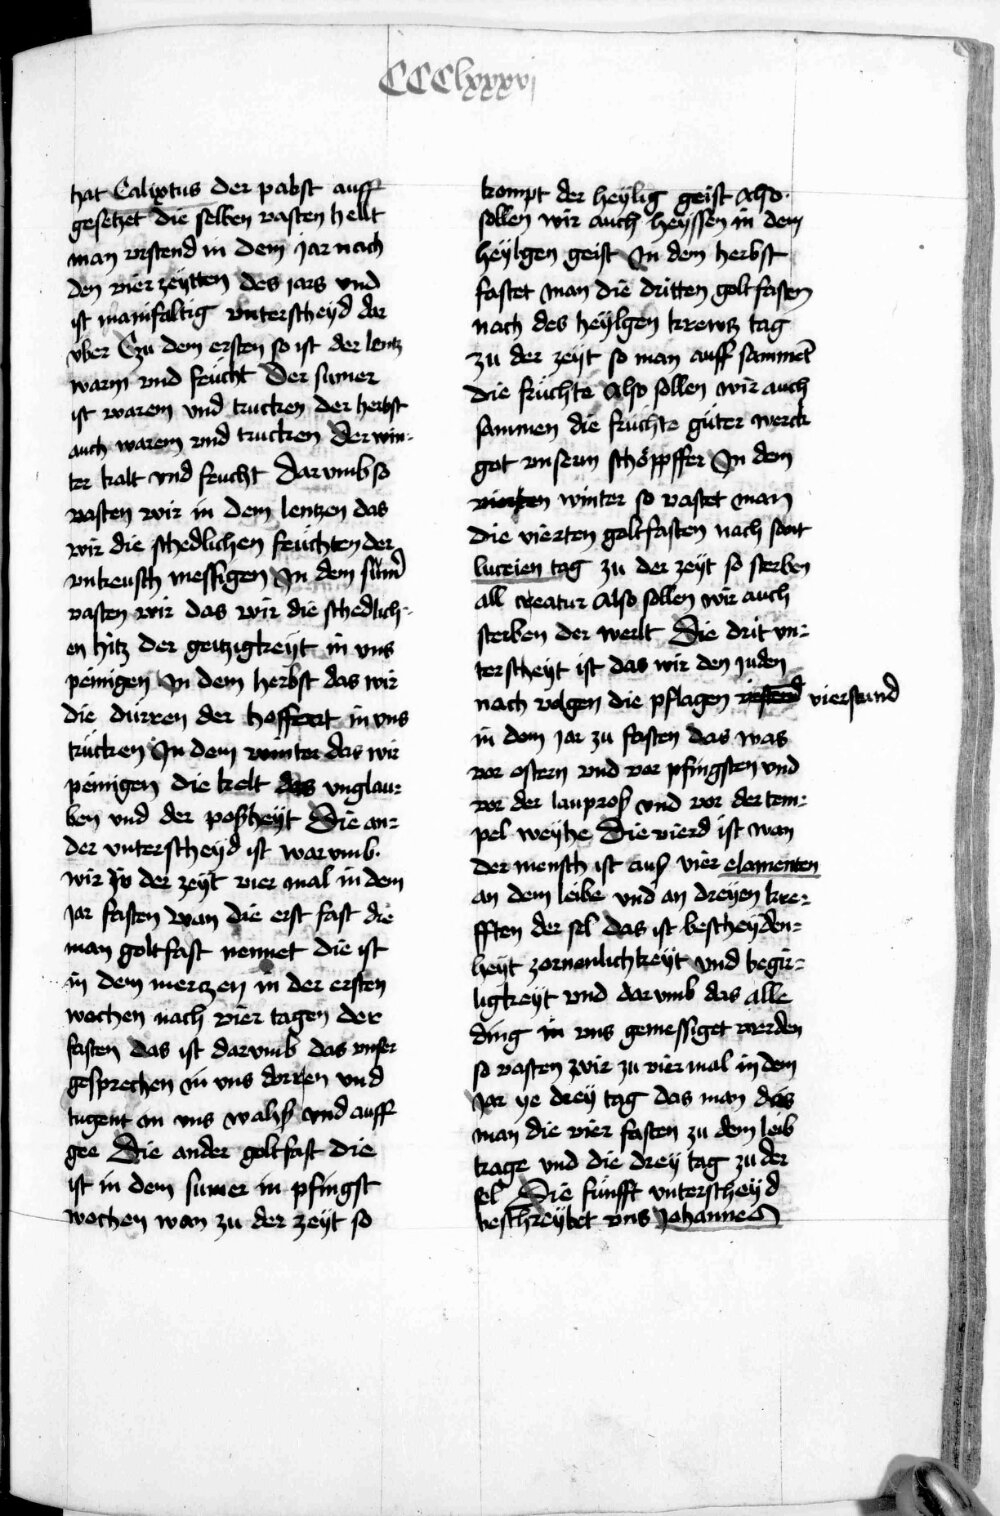 CCClxxxvj
hat Calixtus der pabst auff
gesetzet die selben vasten helt
man vestend in dem jar nach
den vier zeytten des jars vnd
ist manifaltig vnterscheyd dar
vber Czu dem ersten so ist der lentz
warm vnd feucht Der sumer
ist warem vnd trucken der herbst
auch warem vnd trucken der win-
ter kalt vnd feucht Dar vmb so
vasten wir in dem lentzen das
wir die schedlichen feuchten der
vnkeusch messigen In dem sumer
vasten wir das wir die schedlich-
en hitz der geitzigkeyt in vns
peinigen In dem herbst das wir
die durren der hoffart in vns
trucken In dem winter das wir
peinigen die kelt des vnglau-
ben vnd der posheyt Die an-
der vnterscheyd ist war vmb
wir in der zeyt vier mal in dem
jar fasten wan die erst fast die
man goltfast nennet die ist
in dem mertzen in der ersten
wochen nach vier tagen der
fasten das ist darvmb das vnser
gesprechen in vns dorren vnd
tugent an vns wahs vnd auff
gee Die ander goltfast die
ist in dem sumer in pfingst
wochen wan zu der zeyt so
kompt der heylig geist Also
sollen wir auch heyssen in dem
heylgen geist In dem herbst
fastet man die dritten goltfasten
nach des heylgen krewtz tag
zu der zeyt so man auff sammet
die fruchte Also sollen wir auch
sammen die fruchte guter werck
got vnserm schöppffer In dem
vierten winter so vastet man
die vierten goltfasten nach sant
lucien tag zu der zeyt so sterben
all creatur Also sollen wir auch
sterben der werlt Die drit vn-
terscheyt ist das wir den juden
nach volgen die pflagen vierstund
in dem jar zu fasten das was
vor ostern vnd vor pfingsten vnd
vor der lauprosz vnd vor der tem-
pel weyhe Die vierd ist wan
der mensch ist ausz vier elamenten
an dem leibe vnd an dreyen kre-
fften der sel das ist bescheyden-
heyt zornenlichkeyt vnd begir-
ligkeyt vnd darvmb das alle
ding in vns gemessiget werden
so vasten wir zu vier mal in dem
jar ye drey tag das man das
man die vier fasten zu dem leib
trage vnd die drey tag zu der
sel Die funfft vnterscheyd
beschreybet vns Johannes